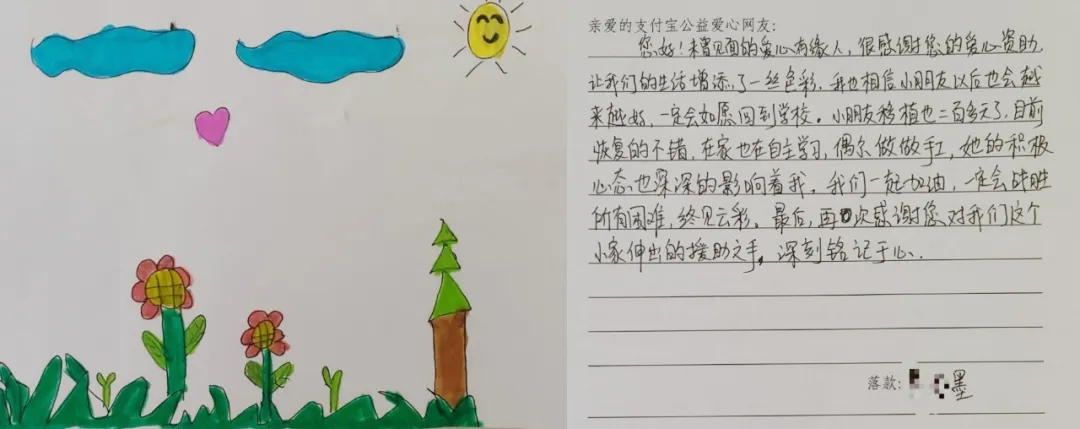 亲爱的支付宝公益爱心网友:
您好!未曾见面的爱心有缘人,很感谢您的爱心资助,
让我们的生活增添了一丝色彩,我也相信小朋友以后也会越
来越好,一定会如愿回到学校。小朋友移植也二百多天了,目前
恢复的不错,在家也在自主学习,偶尔做做手工,她的积极
心态也深深的影响着我。我们一起加油,一定会战胜
所有困难,终见云彩。最后,再次感谢您对我们这个
小家伸出的援助之手,深刻铭记于心.
落款: 墨